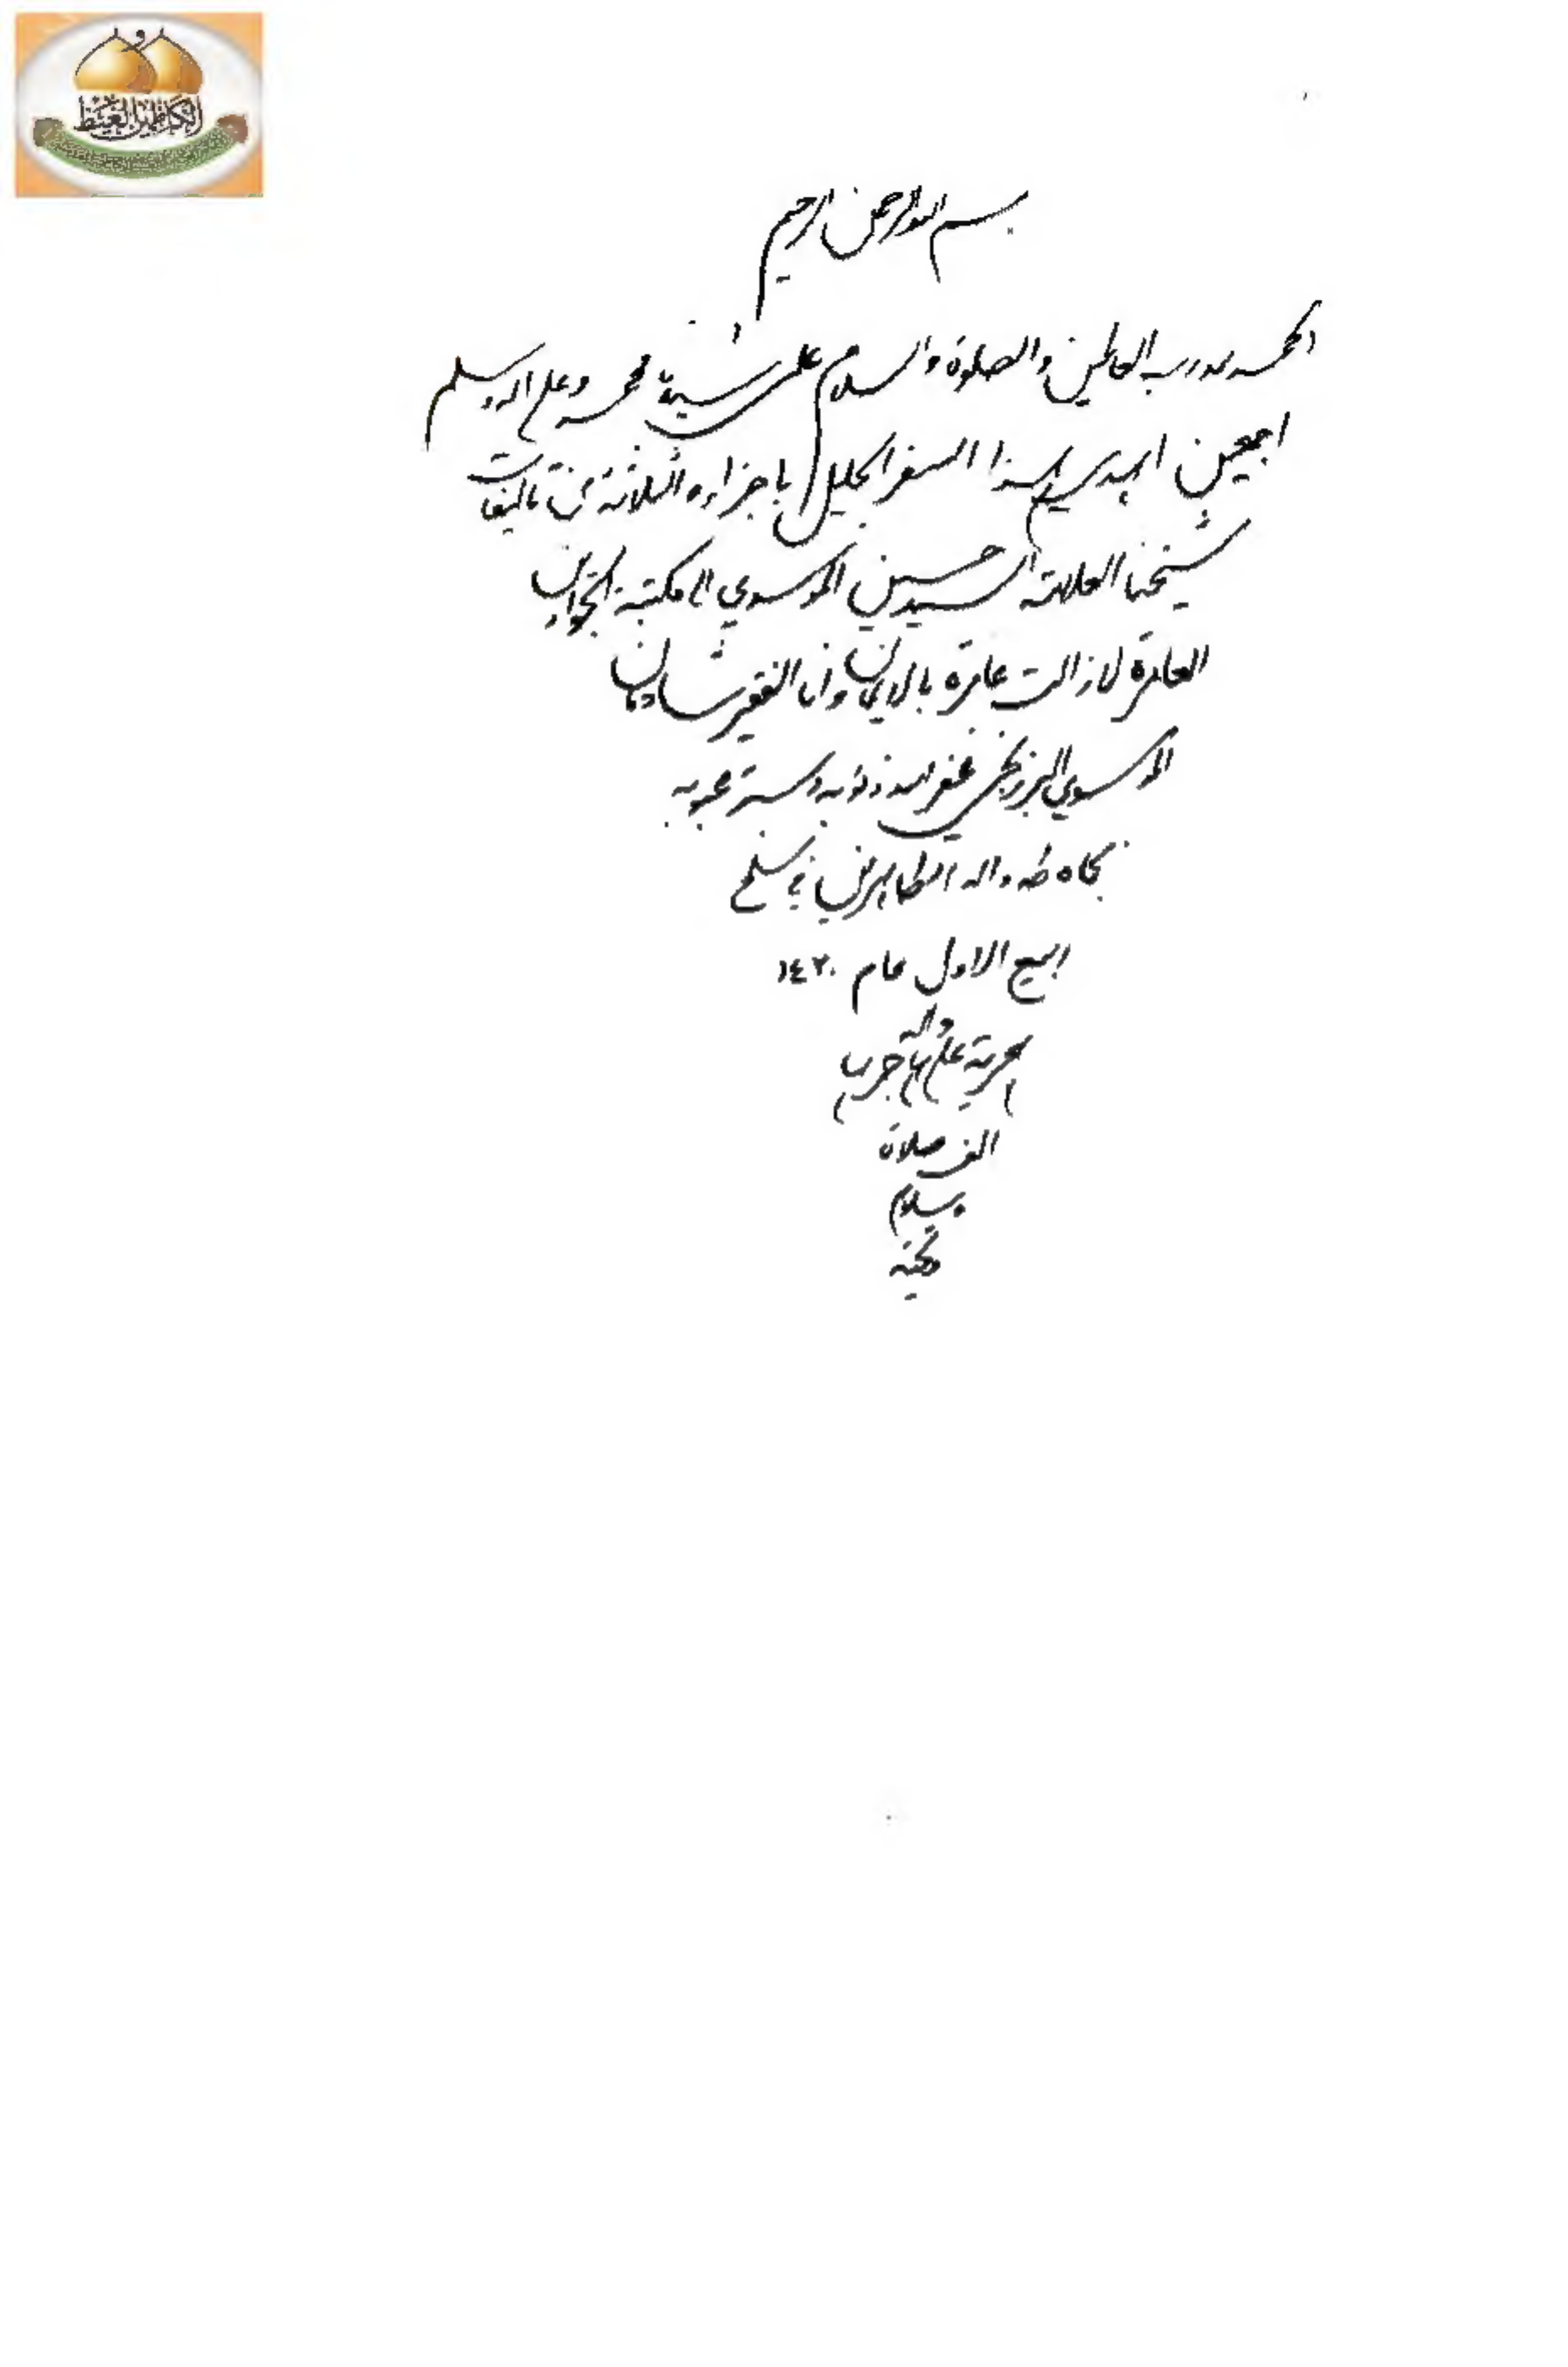 والكاظمين الغيظ
بسم الله الرحمن الرحيم
الحمد لله رب العالمين والصلوة والسلام على محمد وعلى اله وسلم
اجمعين اهدي هذا السفر الجليل باجزاءه الثلاثة من تاليفات
شيخنا العلامة السيد حسين الموسوي الى مكتبة الجوادين
العامرة لازالت عامرة بالايمان وانا الفقير شادمان
الموسوي البرزنجي غفر الله ذنوبه وستر عيوبه
بجاه طه واله الطاهرين في سلخ
ربيع الاول عام ١٤٢٠
الهجرية على مهاجرها واله
الف صلاة
وسلام
وتحية